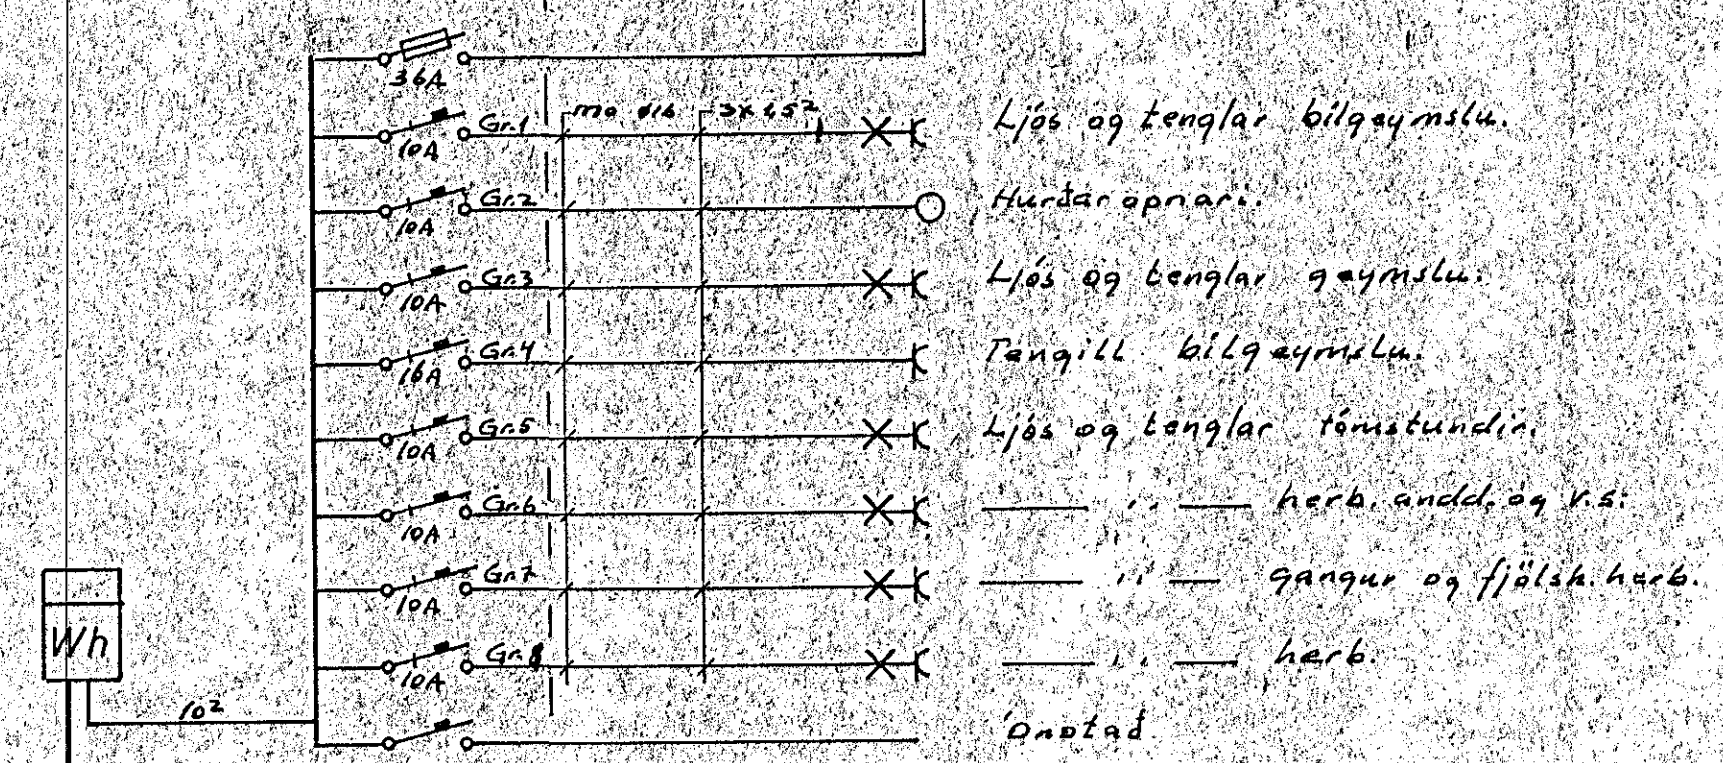 36A
Gr.1 mo ø16 3x1.5² Ljós og tenglar bílgeymslu.
10A
Gr.2 Hurðaropnari.
10A
Gr.3 Ljós og tenglar geymslu.
10A
Gr.4 Tengill bílgeymslu.
16A
Gr.5 Ljós og tenglar tómstundir.
10A
Gr.6 —— ,, —— herb. andd. og v.s.
10A
Gr.7 —— ,, —— gangur og fjölsk. herb.
10A
Wh
Gr.8 —— ,, —— herb.
10A
10²
Ónotað